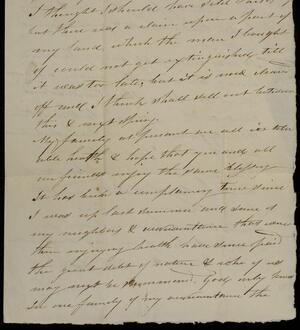 I thought I should have sold
but there was a claim upon a part of
my land which the man I bought
of could not get extinguished till
it was too late, but it is now
off and I think shall sell out between
this & next Spring.
My family at present are all in
health & hope that you and all
our friends enjoy the same blessing
It has been a complaining time since
I was up last summer and some of
my neighbors & acquaintance that were
then enjoying health have since paid
the great debt of nature & who of us
may be summoned God only knows
in one family of my acquaintance the